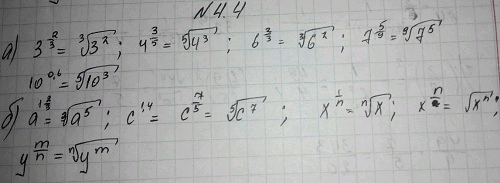 № 4.4
а) 3^{2/3} = ∛(3²); 4^{3/5} = ⁵√(4³); 6^{2/3} = ∛(6²); 7^{5/9} = ⁹√(7⁵)
10^{0,6} = ⁵√(10³)
б) a^{1 2/3} = ∛(a⁵); c^{1,4} = c^{7/5} = ⁵√(c⁷); x^{1/n} = ⁿ√x; x^{n/2} = √(xⁿ);
y^{m/n} = ⁿ√(y^m)